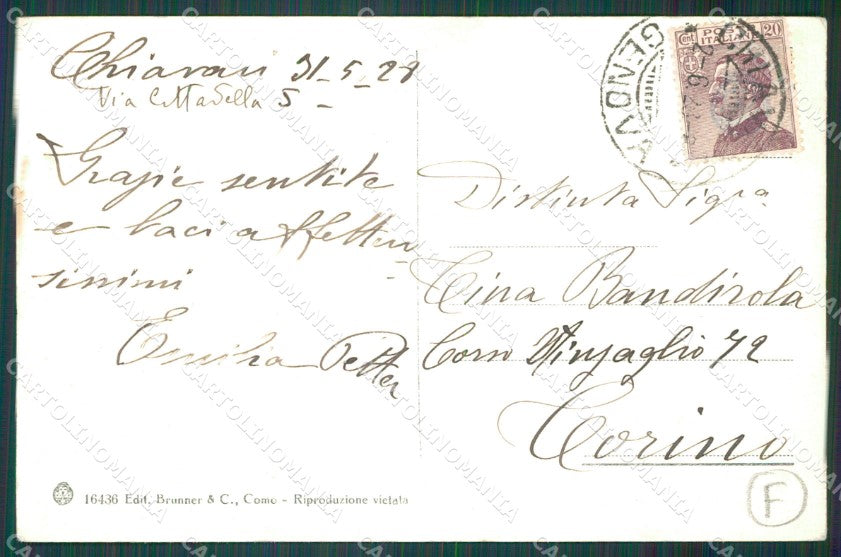 Chiavari 31-5-28
Via Cittadella 5-
Grazie sentite
e baci affettuo-
sissimi
Emilia Petter
GENOVA
CHIAVARI
POSTE
ITALIANE
cent 20
Distinta Sigra
Tina Bandirola
Corso Vinzaglio 72
Torino
F
16436 Edit. Brunner & C., Como - Riproduzione vietata
CARTOLINOMANIA